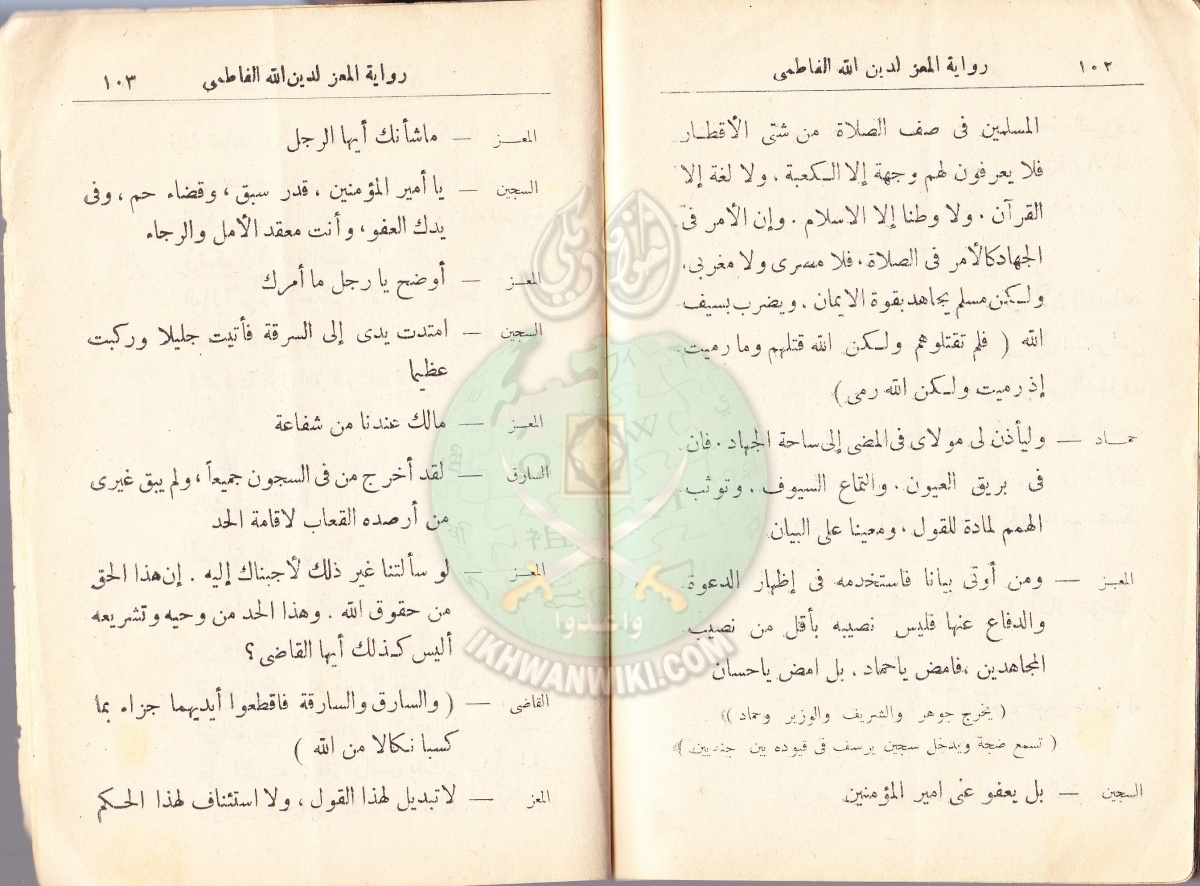 ١٠٢ رواية المعز لدين الله الفاطمى
المسلمين فى صف الصلاة من شتى الأقطار
فلا يعرفون لهم وجهة إلا الكعبة . ولا لغة إلا
القرآن . ولا وطنا إلا الاسلام . وإن الأمر فى
الجهاد كالأمر فى الصلاة . فلا مشرى ولا مغربى .
ولكن مسلم يجاهد بقوة الايمان . ويضرب بسيف
الله ( فلم تقتلوهم ولكن الله قتلهم وما رميت
إذ رميت ولكن الله رمى )
حماد — وليأذن لى مولاى فى المضى إلى ساحة الجهاد . فان
فى بريق العيون . والتماع السيوف . وتوثب
الهمم لمادة للقول . ومعينا على البيان
المعز — ومن أوتى بيانا فاستخدمه فى إظهار الدعوة
والدفاع عنها فليس نصيبه بأقل من نصيب
المجاهدين ، فامض ياحماد . بل امض ياحسان
( يخرج جوهر والشريف والوزير وحماد )
( تسمع ضجة ويدخل سجين يرسف فى قيوده بين جنديين )
السجين — بل يعفو عنى امير المؤمنين
رواية المعز لدين الله الفاطمى ١٠٣
المعز — ماشأنك أيها الرجل
السجين — يا أمير المؤمنين ، قدر سبق ، وقضاء حم ، وفى
يدك العفو ، وأنت معقد الأمل والرجاء
المعز — أوضح يا رجل ما أمرك
السجين — امتدت يدى إلى السرقة فأتيت جليلا وركبت
عظيما
المعز — مالك عندنا من شفاعة
السارق — لقد أخرج من فى السجون جميعاً ، ولم يبق غيرى
من أرصده القعاب لاقامة الحد
المعز — لو سألتنا غير ذلك لأجبناك إليه . إن هذا الحق
من حقوق الله . وهذا الحد من وحيه وتشريعه
أليس كذلك أيها القاضى ؟
القاضى — ( والسارق والسارقة فاقطعوا أيديهما جزاء بما
كسبا نكالا من الله )
المعز — لا تبديل لهذا القول ، ولا استئناف لهذا الحكم
وأعدوا
IKHWANWIKI.COM